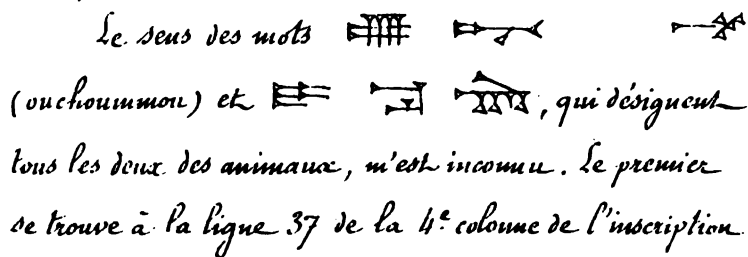 Le sens des mots
(ouchoummou) et , qui désignent
tous les deux des animaux, m'est inconnu. Le premier
se trouve à la ligne 37 de la 4ᵉ colonne de l'inscription